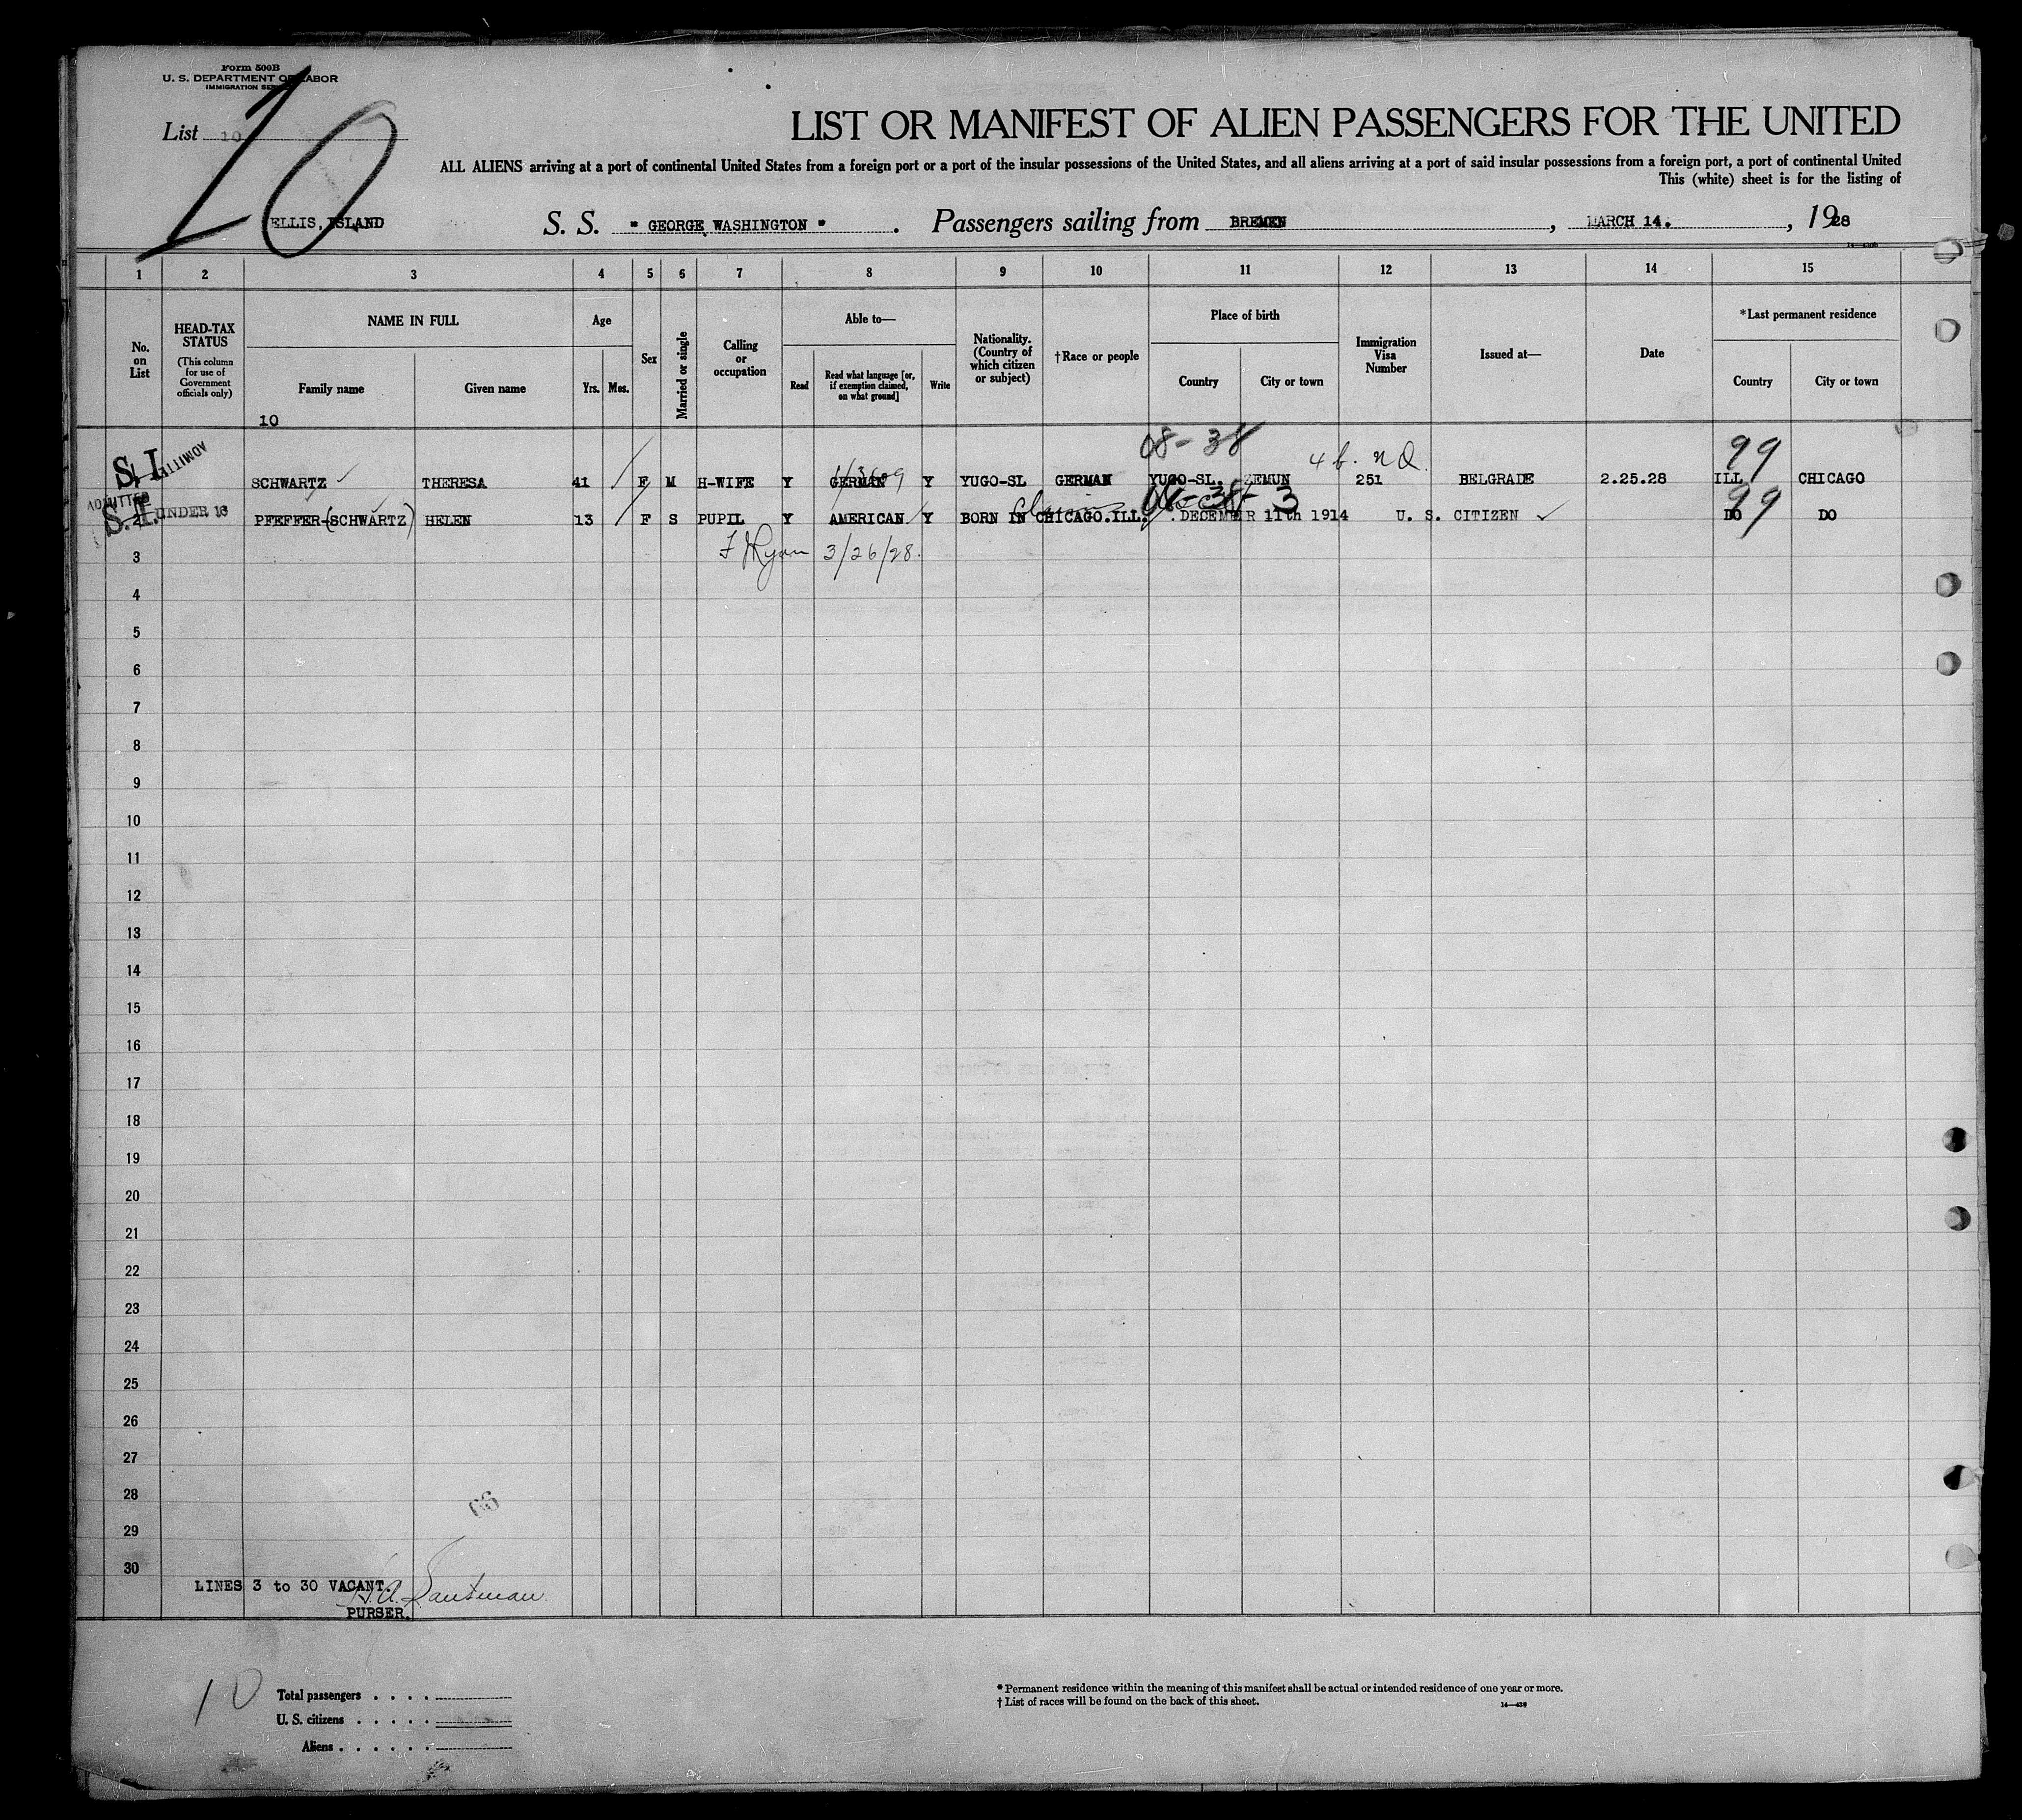 Form 500B
U. S. DEPARTMENT OF LABOR
IMMIGRATION SERVICE
List 10
10
LIST OR MANIFEST OF ALIEN PASSENGERS FOR THE UNITED
ALL ALIENS arriving at a port of continental United States from a foreign port or a port of the insular possessions of the United States, and all aliens arriving at a port of said insular possessions from a foreign port, a port of continental United
This (white) sheet is for the listing of
ELLIS, ISLAND S. S. " GEORGE WASHINGTON " . Passengers sailing from BREMEN , MARCH 14. , 1928
1 2 3 4 5 6 7 8 9 10 11 12 13 14 15
No. on List
HEAD-TAX STATUS (This column for use of Government officials only)
NAME IN FULL
Family name Given name
Age
Yrs. Mos.
Sex
Married or single
Calling or occupation
Able to—
Read
Read what language [or, if exemption claimed, on what ground]
Write
Nationality. (Country of which citizen or subject)
†Race or people
Place of birth
Country City or town
Immigration Visa Number
Issued at—
Date
*Last permanent residence
Country City or town
10
08-38 4 b. n Q. 99
S.I. ADMITTED
SCHWARTZ THERESA 41 F M H-WIFE Y GERMAN Y YUGO-SL GERMAN YUGO-SL. ZEMUN 251 BELGRADE 2.25.28 ILL CHICAGO
ADMITTED S.I.
08-38-3 99
2 UNDER 16 PFEFFER (SCHWARTZ) HELEN 13 F S PUPIL Y AMERICAN Y BORN IN CHICAGO.ILL. DECEMBER 11th 1914 U. S. CITIZEN DO DO
3 F J Ryan 3/26/28.
4
5
6
7
8
9
10
11
12
13
14
15
16
17
18
19
20
21
22
23
24
25
26
27
28
29
30
LINES 3 to 30 VACANT.
PURSER.
10
Total passengers
U. S. citizens
Aliens
* Permanent residence within the meaning of this manifest shall be actual or intended residence of one year or more.
† List of races will be found on the back of this sheet.
14—439